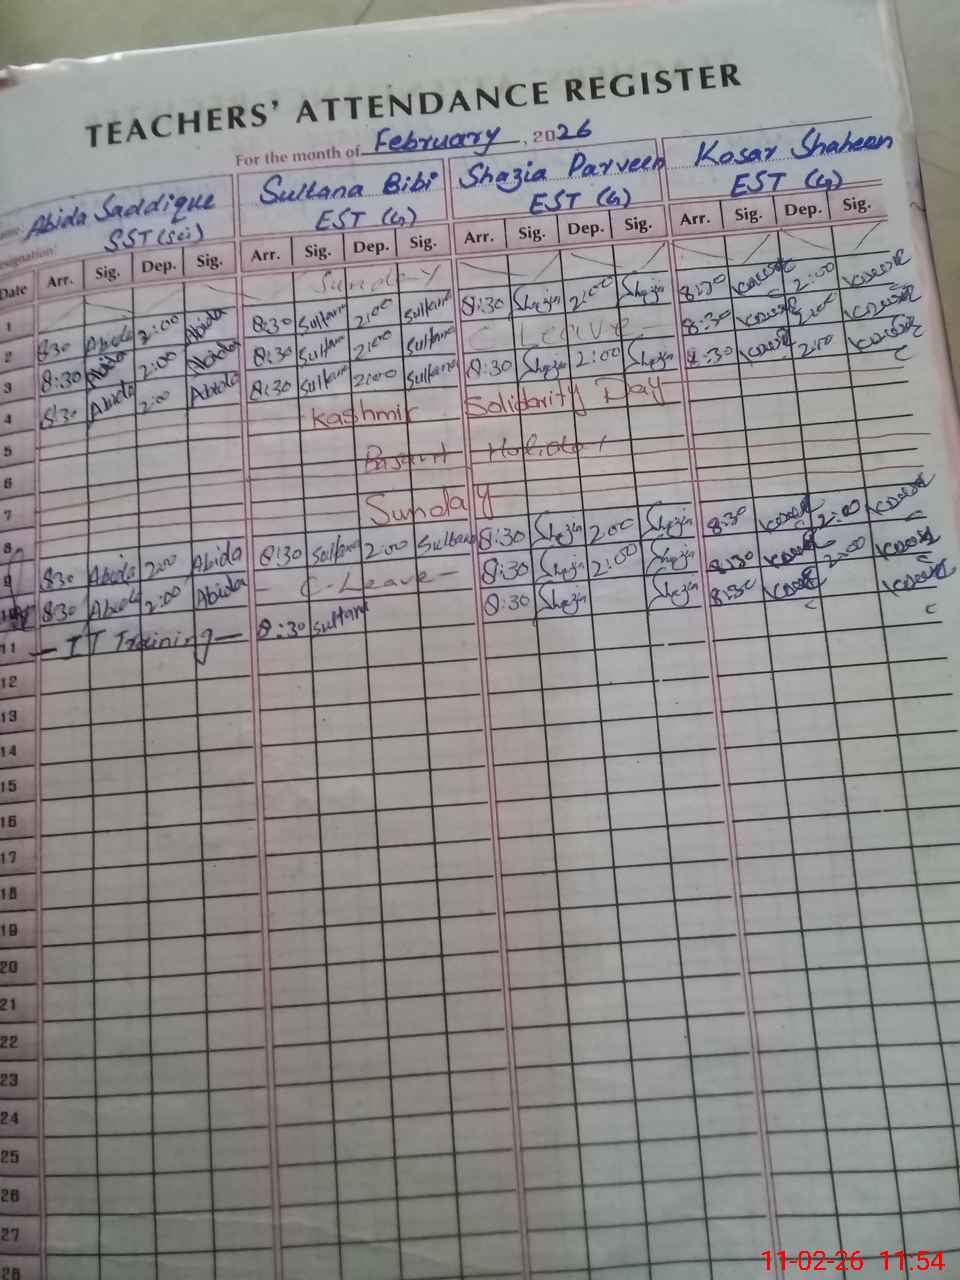 TEACHERS' ATTENDANCE REGISTER
For the month of February, 2026
Abida Saddique Sultana Bibi Shazia Parveen Kosar Shaheen
SST (Sci) EST (G) EST (G) EST (G)
Date Arr. Sig. Dep. Sig. Arr. Sig. Dep. Sig. Arr. Sig. Dep. Sig. Arr. Sig. Dep. Sig.
1 Sunday
2 830 Abida 2:00 Abida 8:30 Sultana 2:00 Sultana 8:30 Shazia 2:00 Shazia 8:30 2:00
3 8:30 Abida 2:00 Abida 8:30 Sultana 2:00 Sultana C Leave 8:30 2:00
4 8:30 Abida 2:00 Abida 8:30 Sultana 2:00 Sultana 8:30 Shazia 2:00 Shazia 8:30 2:00
5 Kashmir Solidarity Day
6 Basant Holiday
7
8 Sunday
9 830 Abida 2:00 Abida 8:30 Sultana 2:00 Sultana 8:30 Shazia 2:00 Shazia 8:30 2:00
10 830 Abida 2:00 Abida - C-Leave - 8:30 Shazia 2:00 Shazia 8:30 2:00
11 - IT Training - 8:30 Sultana 8:30 Shazia Shazia 8:30
12
13
14
15
16
17
18
19
20
21
22
23
24
25
26
27
28
11-02-26 11:54